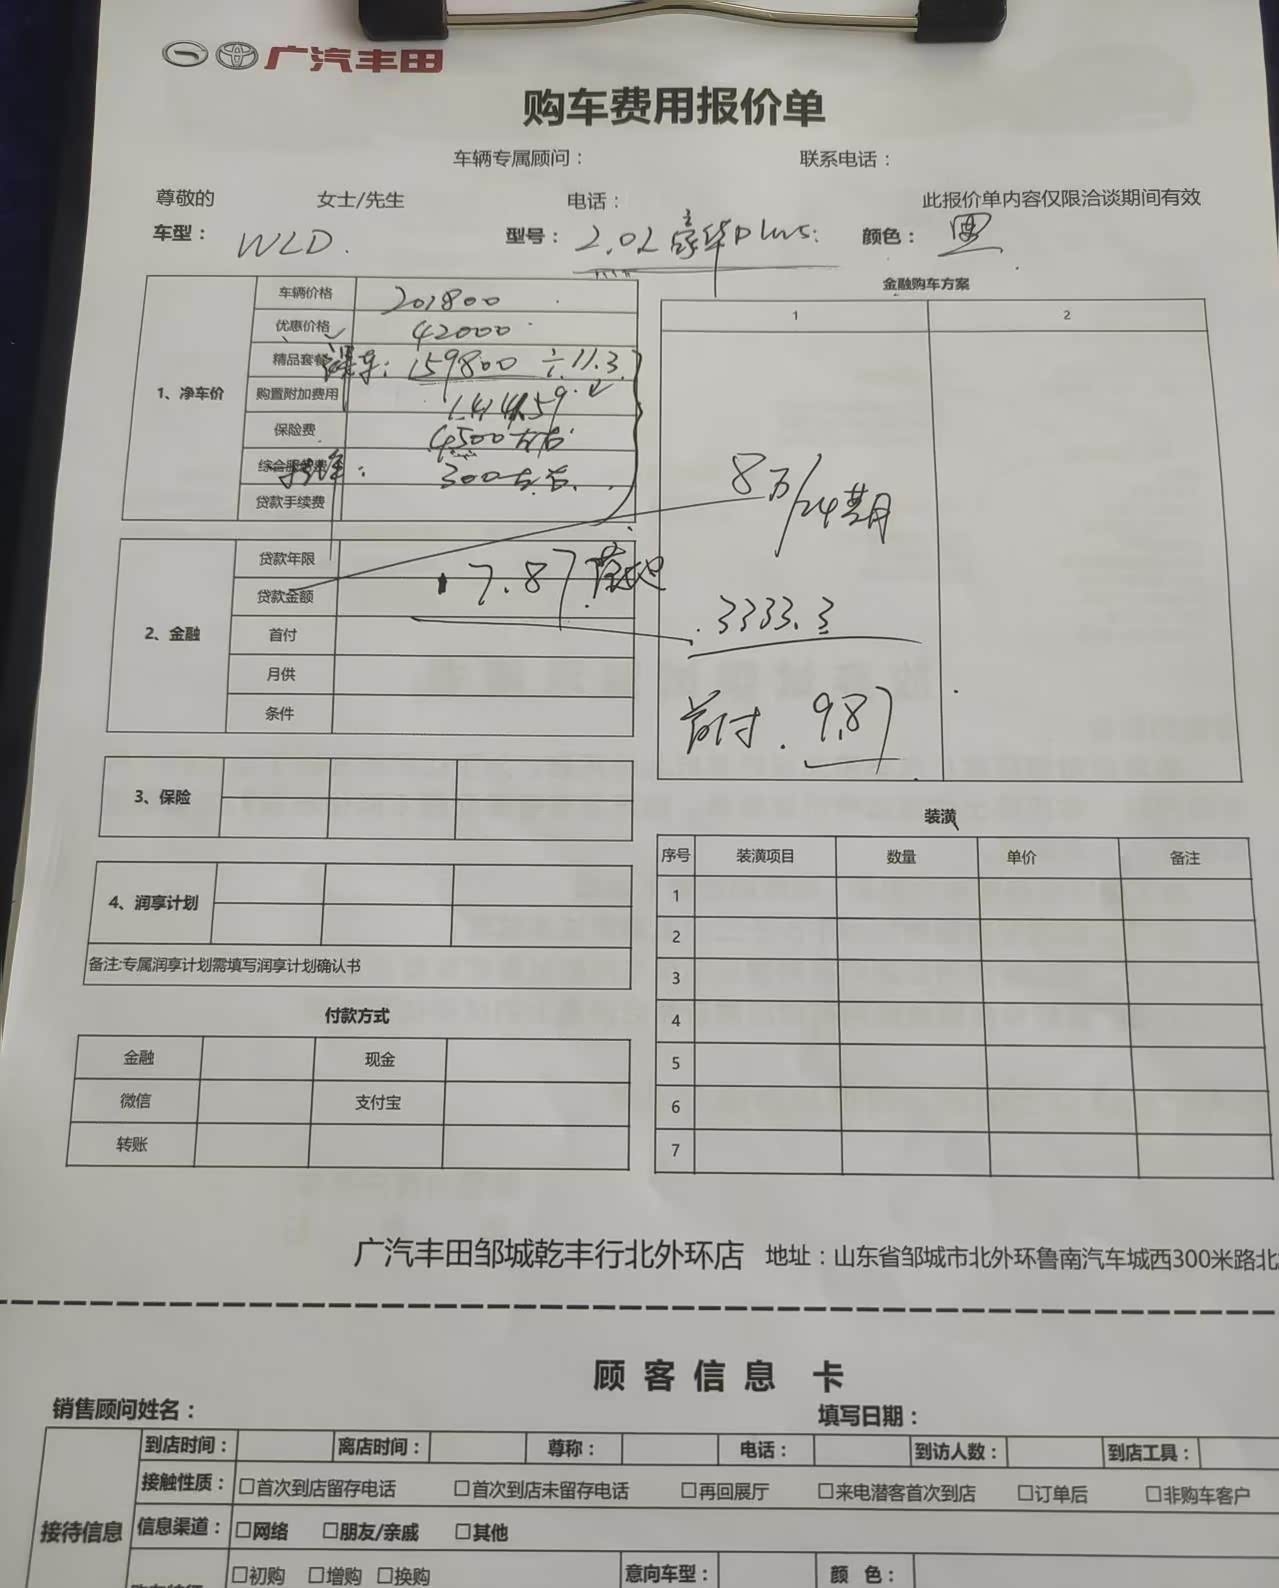 广汽丰田
购车费用报价单
车辆专属顾问： 联系电话：
尊敬的 女士/先生 电话： 此报价单内容仅限洽谈期间有效
车型： WLD. 型号： 2.0L豪华plus. 颜色： 黑
金融购车方案
1、净车价
车辆价格 201800
优惠价格 42000
精品套餐 裸车：159800 ÷11.3
购置附加费用 1.41459
保险费 4500左右
综合服务费 ： 300左右
贷款手续费
1 2
8万/24期
3333.3
首付. 9.87
2、金融
贷款年限
贷款金额 17.87落地
首付
月供
条件
3、保险
4、润享计划
备注:专属润享计划需填写润享计划确认书
装潢
序号 装潢项目 数量 单价 备注
1
2
3
4
5
6
7
付款方式
金融 现金
微信 支付宝
转账
广汽丰田邹城乾丰行北外环店 地址：山东省邹城市北外环鲁南汽车城西300米路北
顾客信息 卡
销售顾问姓名： 填写日期：
接待信息
到店时间： 离店时间： 尊称： 电话： 到访人数： 到店工具：
接触性质： □首次到店留存电话 □首次到店未留存电话 □再回展厅 □来电潜客首次到店 □订单后 □非购车客户
信息渠道： □网络 □朋友/亲戚 □其他
□初购 □增购 □换购 意向车型： 颜 色：